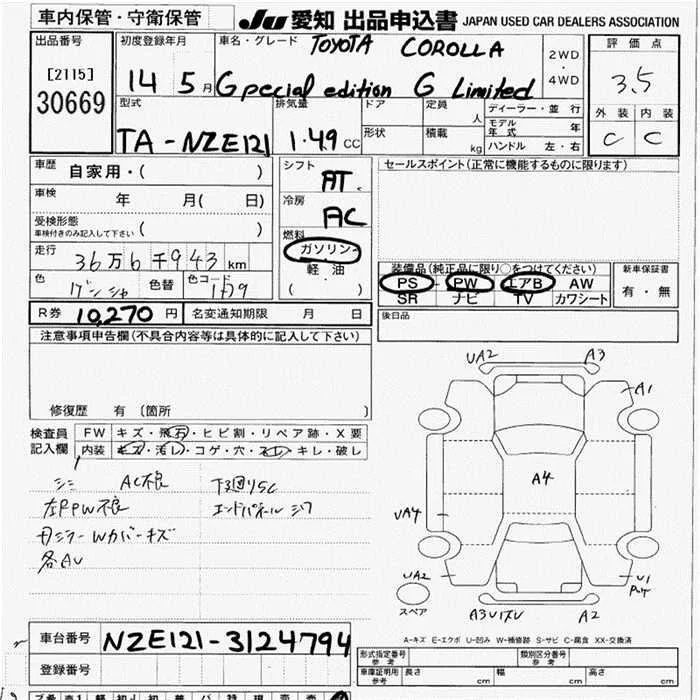 車内保管・守衛保管
JU 愛知 出品申込書 JAPAN USED CAR DEALERS ASSOCIATION
出品番号
[2115]
30669
初度登録年月
14 5月
車名・グレード TOYOTA COROLLA
Gpecial edition G Limited
2WD
・
4WD
評価点
3.5
外装 内装
C C
型式
TA-NZE121
排気量
1.49 CC
ドア
形状
定員 人
積載 kg
ディーラー・並行
モデル年式 年
ハンドル 左・右
車歴 自家用・( )
車検 年 月( 日)
受検形態
車検付きのみ記入して下さい ( )
走行 36万6千943km
色
色替
色コード
シフト
AT
冷房
AC
燃料
ガソリン
軽油
( )
セールスポイント(正常に機能するものに限ります)
装備品(純正品に限り○をつけてください)
PS PW エアB AW
SR ナビ TV カワシート
新車保証書
有・無
後日品
R券 10,270円 名変通知期限 月 日
注意事項申告欄(不具合内容等は具体的に記入して下さい)
修復歴 有 〔箇所 〕
検査員記入欄
FW キズ・飛石・ヒビ割・リペア跡・X要
内装 キズ・汚レ・コゲ・穴・スレ・キレ・破レ
シミ AC不良
左PPW不良
各AU
UA2 A3
A1
A4
UA4
UA2
スペア
A2
U1
A-キズ E-エクボ U-凹み W-補修跡 S-サビ C-腐食 XX-交換済
車台番号 NZE121-3124794
登録番号
形式指定番号 参考
類別区分番号 参考
車庫証明用 参考
長さ cm 幅 cm 高さ cm